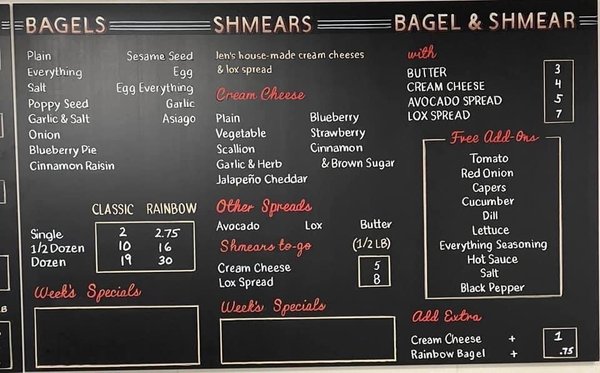 BAGELS
Plain Sesame Seed
Everything Egg
Salt Egg Everything
Poppy Seed Garlic
Garlic & Salt Asiago
Onion
Blueberry Pie
Cinnamon Raisin
CLASSIC RAINBOW
Single 2 2.75
1/2 Dozen 10 16
Dozen 19 30
Week's Specials
SHMEARS
Jen's house-made cream cheeses
& lox spread
Cream Cheese
Plain Blueberry
Vegetable Strawberry
Scallion Cinnamon
Garlic & Herb & Brown Sugar
Jalapeño Cheddar
Other Spreads
Avocado Lox Butter
Shmears to-go (1/2 LB)
Cream Cheese 5
Lox Spread 8
Week's Specials
BAGEL & SHMEAR
with
BUTTER 3
CREAM CHEESE 4
AVOCADO SPREAD 5
LOX SPREAD 7
Free Add-Ons
Tomato
Red Onion
Capers
Cucumber
Dill
Lettuce
Everything Seasoning
Hot Sauce
Salt
Black Pepper
Add Extra
Cream Cheese + 1
Rainbow Bagel + .75